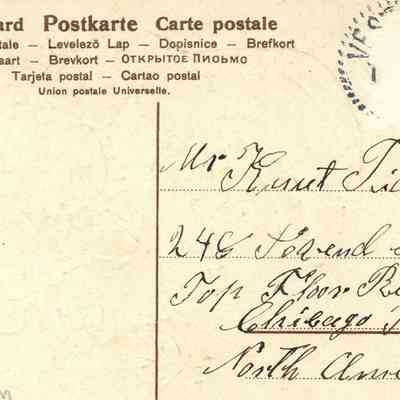 ard Postkarte Carte postale
tale – Levelező Lap – Dopisnice – Brefkort
aart – Brevkort – ОТКРЫТОЕ ПИСЬМО
Tarjeta postal – Cartao postal
Union postale Universelle.
Mr
246
Top Floor
Chicago
North Ame